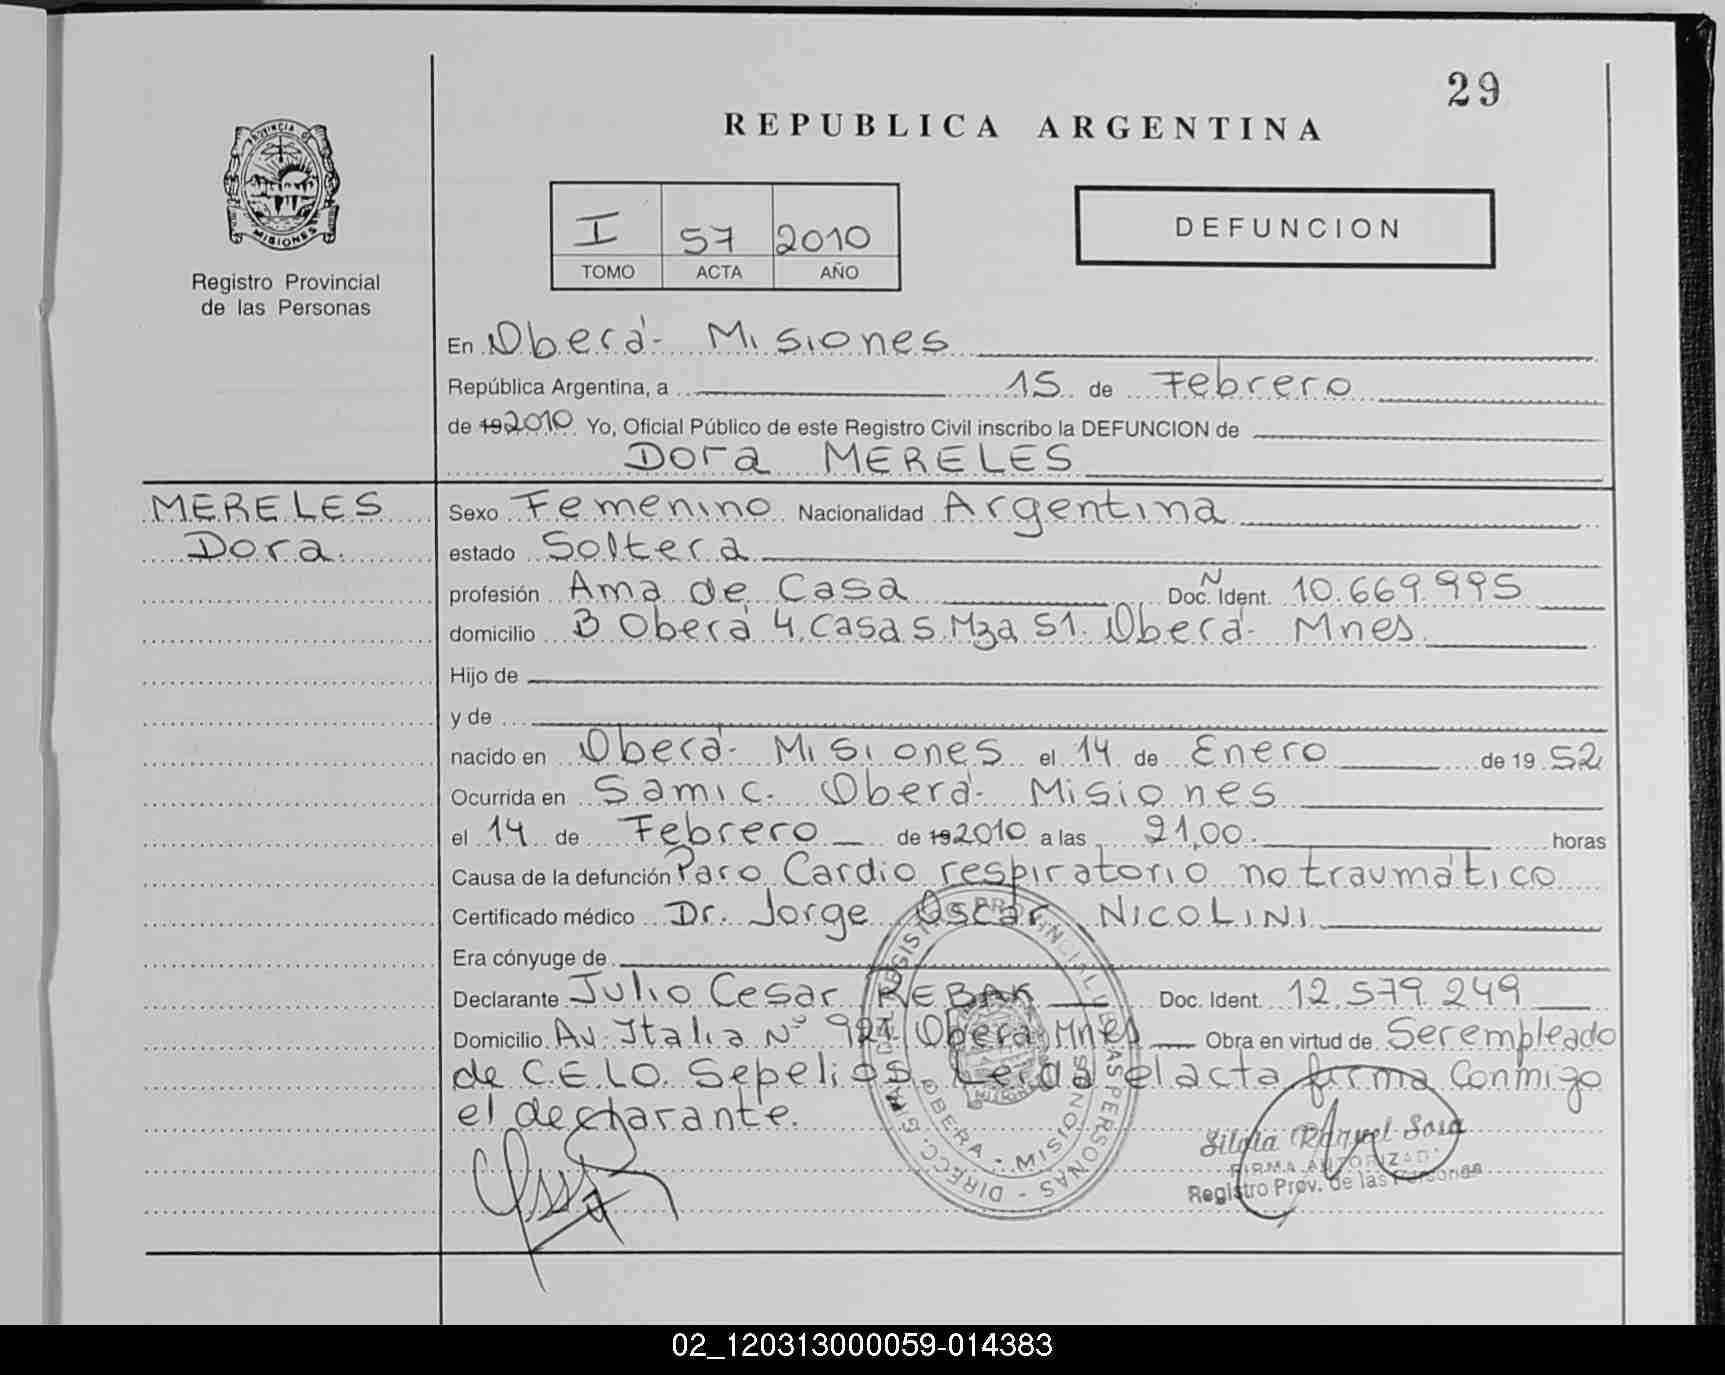 29
REPUBLICA ARGENTINA
PROVINCIA DE
MISIONES
Registro Provincial
de las Personas
I 57 2010
TOMO ACTA AÑO
DEFUNCION
En Oberá- Misiones
República Argentina, a 15 de Febrero
de 19 2010 Yo, Oficial Público de este Registro Civil inscribo la DEFUNCION de
Dora MERELES
MERELES
Dora.
Sexo Femenino Nacionalidad Argentina
estado Soltera
profesión Ama de Casa Doc. N Ident. 10.669.995
domicilio B Oberá 4. Casa 5 Mza 51. Oberá- Mnes.
Hijo de
y de
nacido en Oberá- Misiones el 14 de Enero de 19 52
Ocurrida en Samic. Oberá- Misiones
el 14 de Febrero de 19 2010 a las 21,00. horas
Causa de la defunción Paro Cardio respiratorio no traumático
Certificado médico Dr. Jorge Oscar NICOLINI
Era cónyuge de
Declarante Julio Cesar REBAK Doc. Ident. 12.579.249
Domicilio Av. Italia Nº 921 Oberá Mnes Obra en virtud de Ser empleado
de C.E.L.O. Sepelios. Leida el acta firma Conmigo
el declarante.
REGISTRO PROVINCIAL DE LAS PERSONAS - DIRECC. GRAL.
OBERA - MISIONES
Silvia Raquel Sosa
FIRMA AUTORIZADA
Registro Prov. de las Personas
02_120313000059-014383